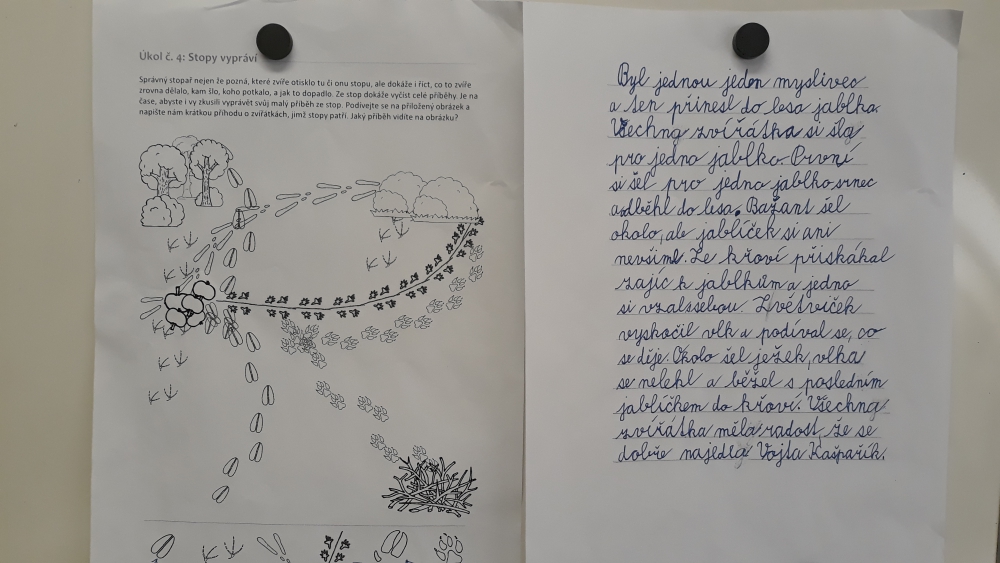 Úkol č. 4: Stopy vypráví
Správný stopař nejen že pozná, které zvíře otisklo tu či onu stopu, ale dokáže i říct, co to zvíře
zrovna dělalo, kam šlo, koho potkalo, a jak to dopadlo. Ze stop dokáže vyčíst celé příběhy. Je na
čase, abyste i vy zkusili vyprávět svůj malý příběh ze stop. Podívejte se na přiložený obrázek a
napište nám krátkou příhodu o zvířátkách, jimž stopy patří. Jaký příběh vidíte na obrázku?
Byl jednou jeden myslivec
a ten přinesl do lesa jablka.
Všechna zvířátka si šla
pro jedno jablko. První
si šel pro jedno jablko srnec
a odběhl do lesa. Bažant šel
okolo, ale jablíček si ani
nevšiml. Ze křoví přiskákal
zajíc k jablkům a jedno
si vzal s sebou. Z větviček
vyskočil vlk a podíval se, co
se děje. Okolo šel ježek, vlka
se nelekl a běžel s posledním
jablíčkem do křoví. Všechna
zvířátka měla radost, že se
dobře najedla Vojta Kašpařík.